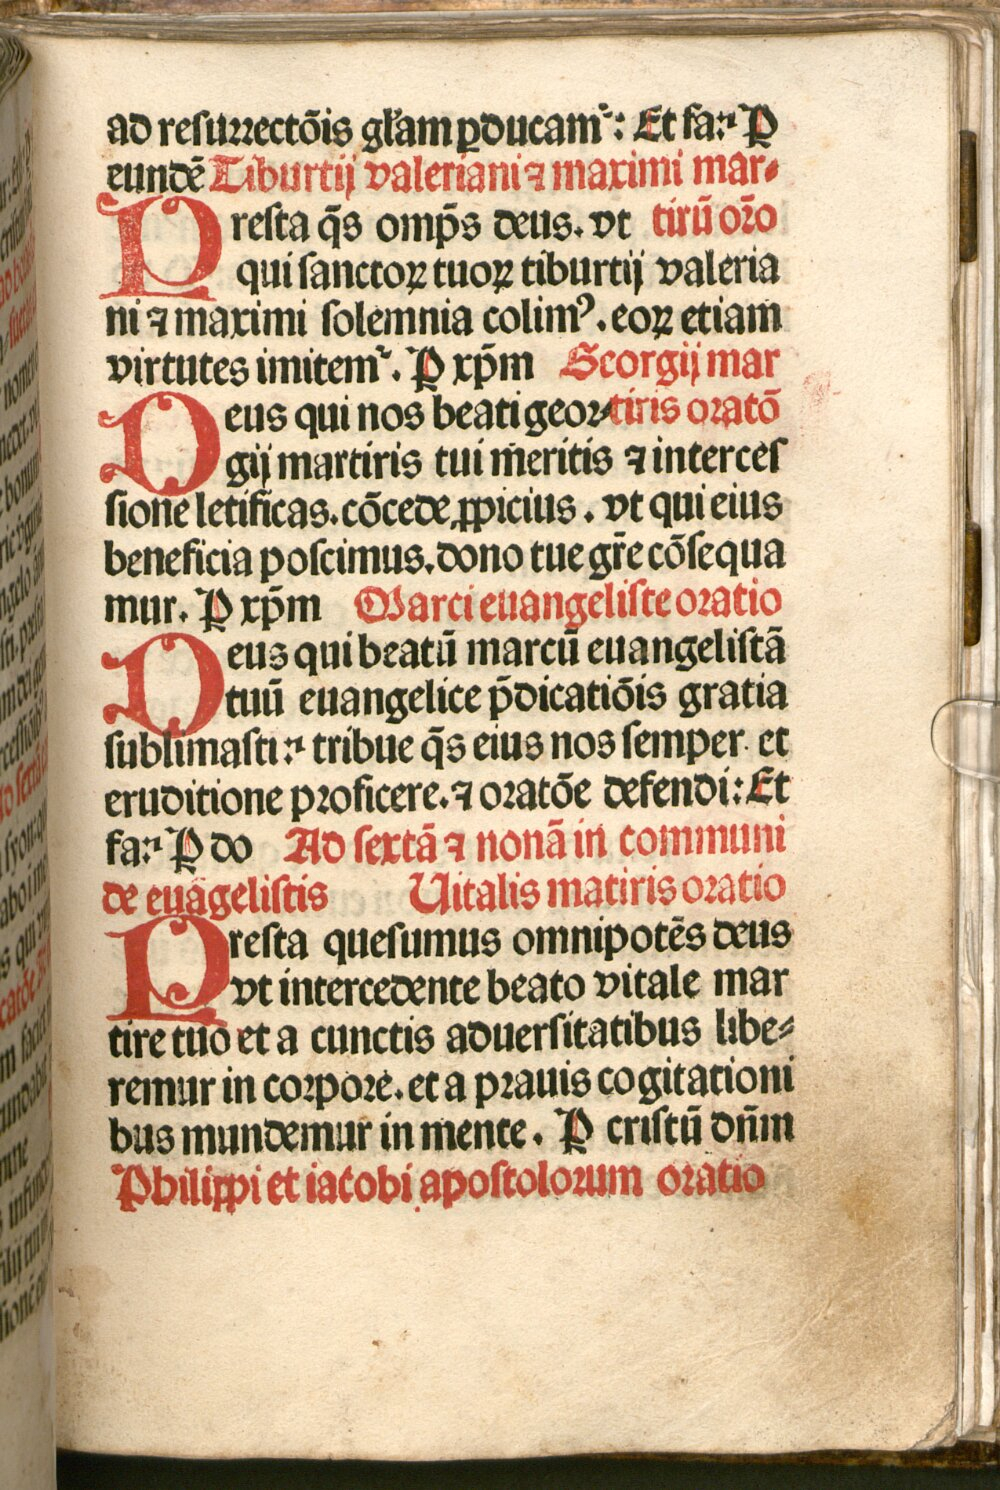 ad resurrectõis gl̃am ꝑducamᷣ: Et fa⁊ᷣ P
eundẽ Tiburtij valeriani ⁊ maximi mar⸗
Presta q̃s omp̃s deus. vt tirũ or̃o
qui sanctoꝝ tuoꝝ tiburtij valeria
ni ⁊ maximi solemnia colimꝰ. eoꝝ etiam
virtutes imitemᷣ. P xp̃m Georgij mar
Deus qui nos beati geor⸗ tiris oratõ
gij martiris tui meritis ⁊ interces
sione letificas. cõcede ꝓpicius. vt qui eius
beneficia poscimus. dono tue gr̃e cõsequa
mur. P xp̃m Marci euangeliste oratio
Deus qui beatũ marcũ euangelistã
tuũ euangelice p̃dicatiõis gratia
sublimasti: tribue q̃s eius nos semper et
eruditione proficere. ⁊ oratõe defendi: Et
fa⁊ᷣ P do Ad sextã ⁊ nonã in communi
de euãgelistis Uitalis matiris oratio
Presta quesumus omnipotẽs deus
vt intercedente beato vitale mar
tire tuo et a cunctis aduersitatibus libe⸗
remur in corpore. et a prauis cogitationi
bus mundemur in mente. P cristũ dñm
Philippi et iacobi apostolorum oratio